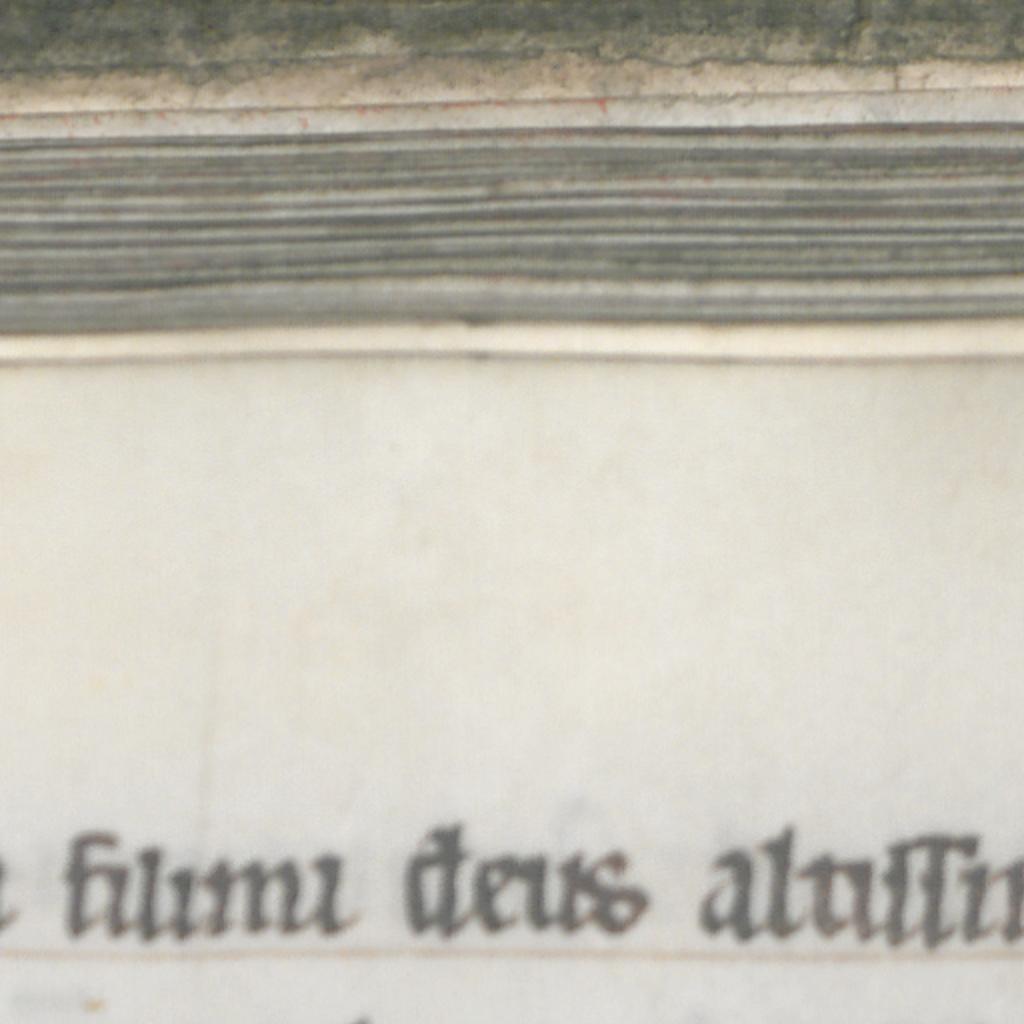 filium deus altissim